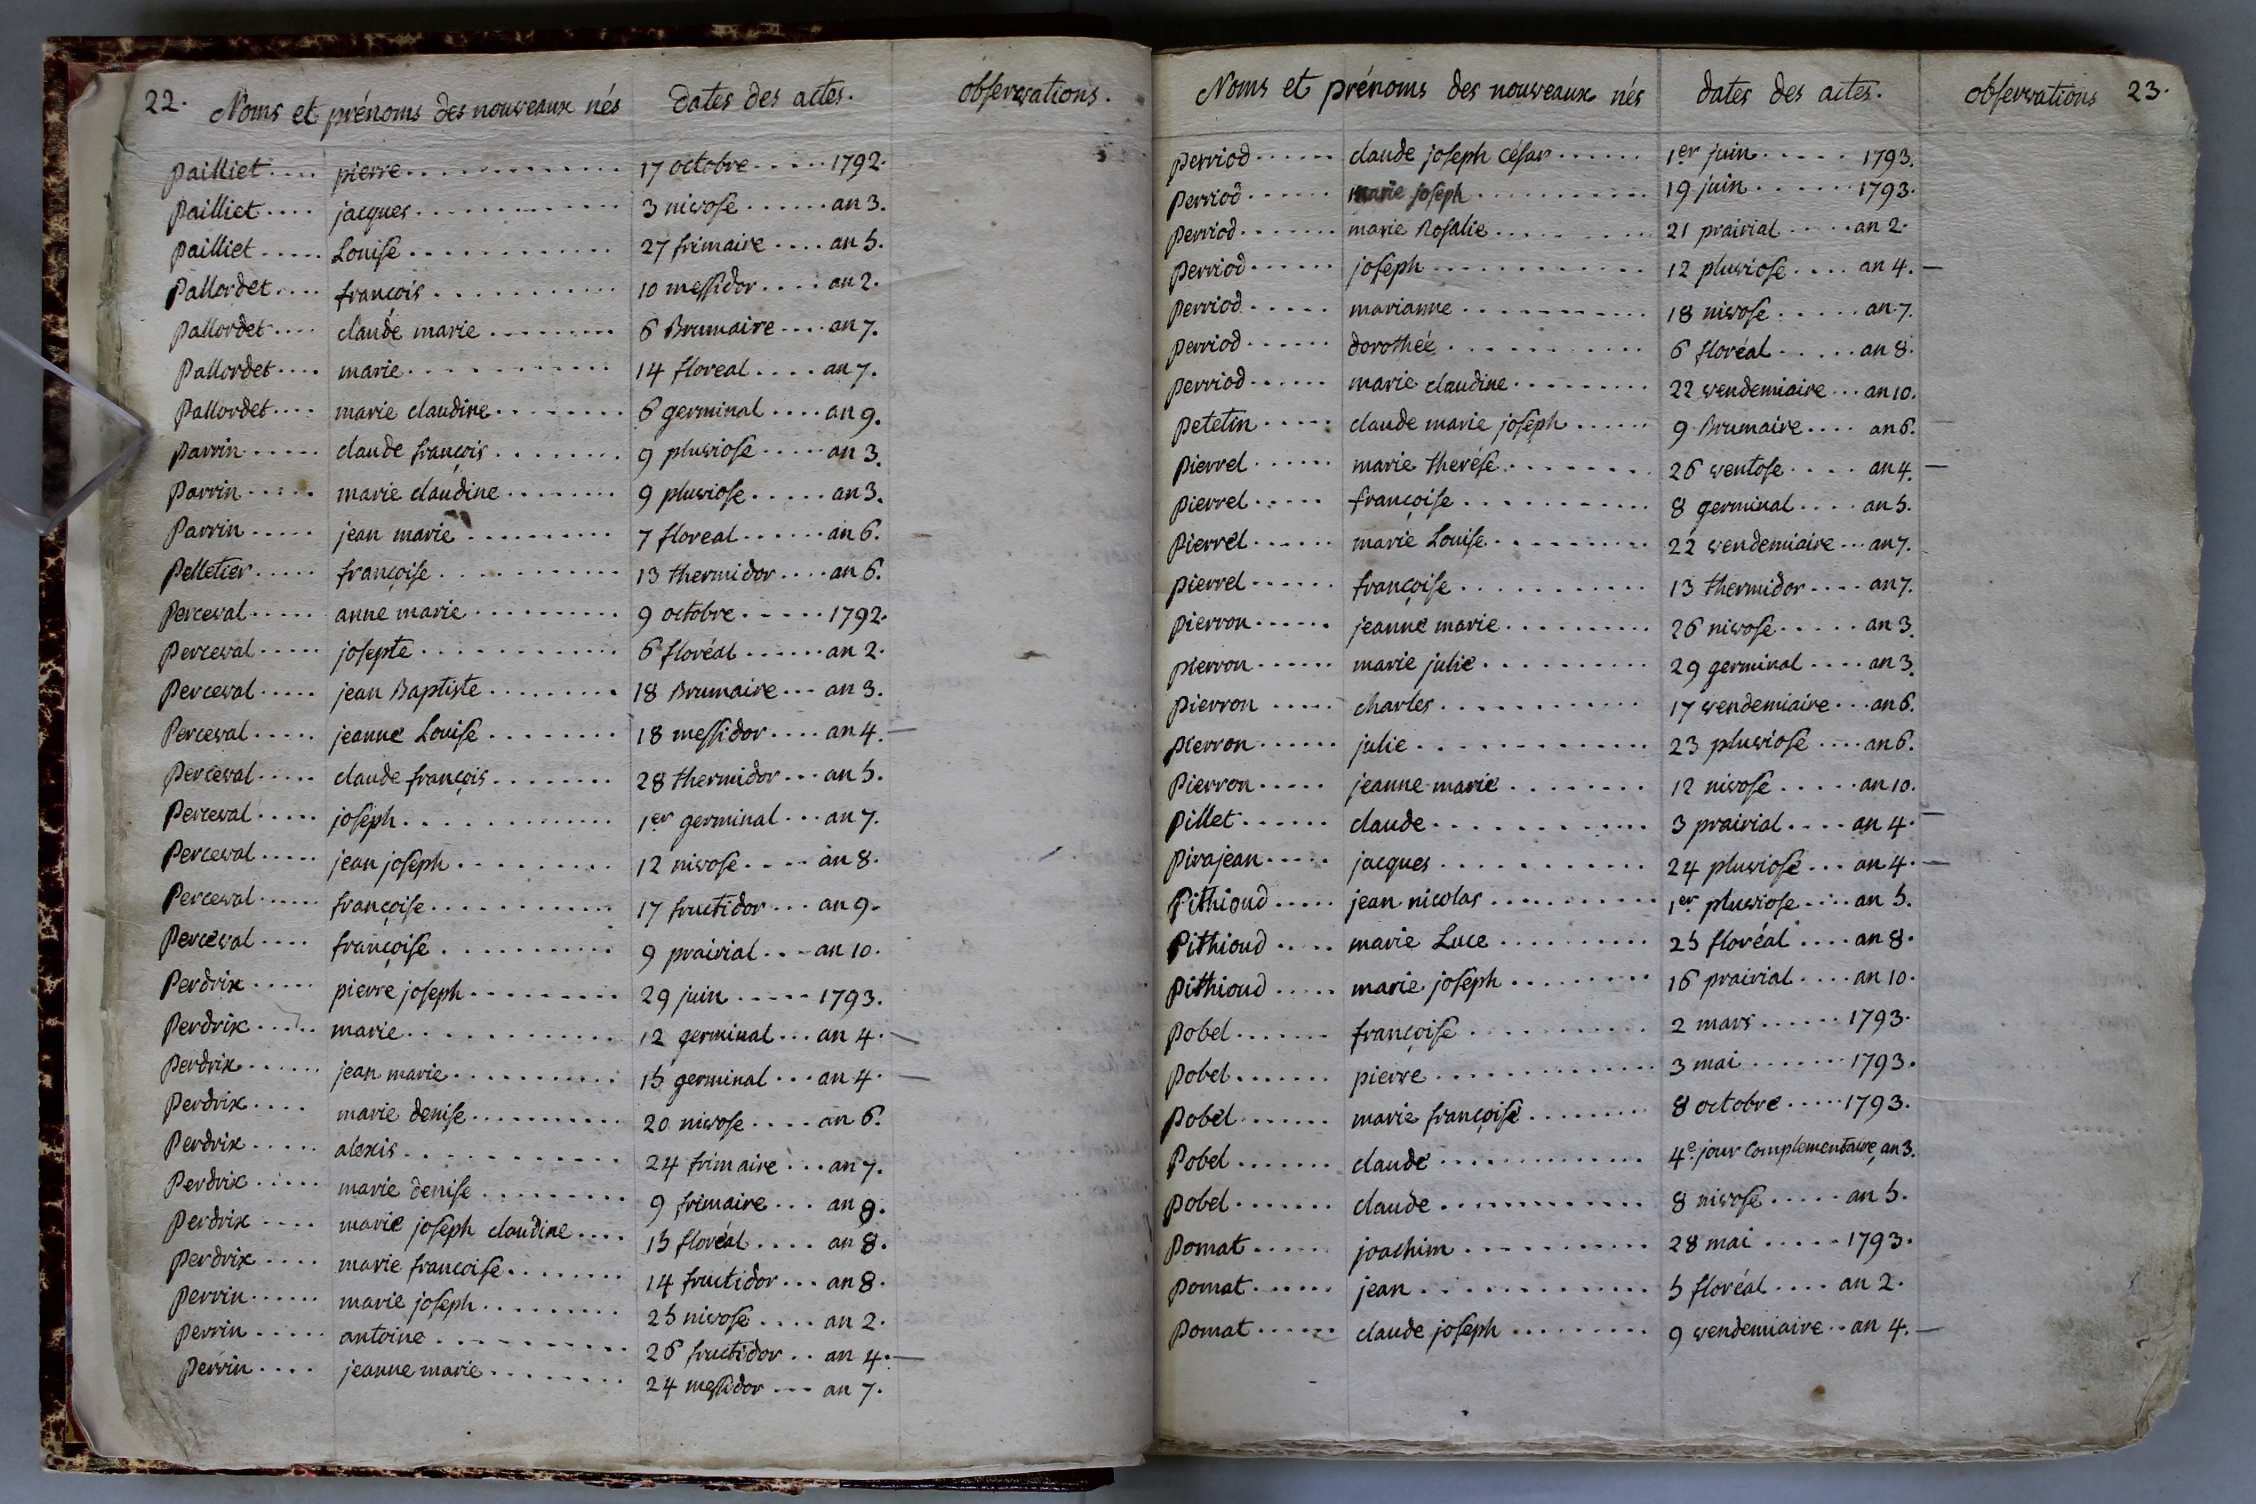 22. Noms et prénoms des nouveaux nés dates des actes. observations.
Pailliet .... pierre ............ 17 octobre ..... 1792.
Pailliet .... jacques ............ 3 nivose ...... an 3.
Pailliet ..... Louise ............ 27 frimaire .... an 5.
Pallordet .... françois ............ 10 messidor .... an 2.
Pallordet .... claude marie ........ 6 Brumaire .... an 7.
Pallordet .... marie ........... 14 floreal .... an 7.
Pallordet .... marie claudine ........ 6 germinal .... an 9.
Parrin ..... claude françois ........ 9 pluviose ..... an 3.
Parrin ..... marie claudine ........ 9 pluviose ..... an 3.
Parrin ..... jean marie .......... 7 floreal ...... an 6.
Pelletier ..... françoise ............ 13 thermidor .... an 6.
Perceval ..... anne marie .......... 9 octobre ..... 1792.
Perceval ..... josepte ............ 6 floréal ...... an 2.
Perceval ..... jean Baptiste ......... 18 Brumaire ... an 3.
Perceval ..... jeanne Louise ........ 18 messidor .... an 4. —
Perceval ..... claude françois ........ 28 thermidor ... an 5.
Perceval ..... joseph ............. 1er germinal ... an 7.
Perceval ..... jean joseph .......... 12 nivose .... an 8.
Perceval ..... françoise ........... 17 fructidor ... an 9.
Perceval .... françoise ........... 9 prairial ... an 10.
Perdrix ..... pierre joseph ......... 29 juin ..... 1793.
Perdrix ..... marie ............. 12 germinal ... an 4. —
Perdrix ...... jean marie .......... 15 germinal ... an 4. —
Perdrix .... marie denise .......... 20 nivose .... an 6.
Perdrix ..... alexis ............ 24 frimaire ... an 7.
Perdrix ..... marie denise ......... 9 frimaire ... an 8.
Perdrix .... marie joseph claudine .... 15 floréal .... an 8.
Perdrix .... marie francoise ........ 14 fructidor ... an 8.
Perrin ...... marie joseph ......... 25 nivose .... an 2.
Perrin ..... antoine .......... 26 fructidor .. an 4. —
Perrin .... jeanne marie ........ 24 messidor ... an 7.
Noms et prénoms des nouveaux nés dates des actes. observations 23.
Perriod ...... claude joseph César ...... 1er juin ..... 1793.
Perriod ...... marie joseph .......... 19 juin ...... 1793.
Perriod ....... marie Rosalie .......... 21 prairial ..... an 2.
Perriod ...... joseph ............ 12 pluviose .... an 4. —
Perriod ..... marianne .......... 18 nivose ..... an 7.
Perriod ...... dorothée ........... 6 floréal ..... an 8.
Perriod ...... marie claudine ......... 22 vendemiaire ... an 10.
Petetin ..... claude marie joseph ...... 9 Brumaire .... an 6.
Pierrel ...... marie therése ........ 26 ventose .... an 4. —
Pierrel ..... françoise ........... 8 germinal .... an 5.
Pierrel ...... marie Louise .......... 22 vendemiaire ... an 7.
Pierrel ...... françoise ........... 13 thermidor .... an 7.
Pierron ...... jeanne marie .......... 26 nivose ..... an 3.
Pierron ...... marie julie .......... 29 germinal .... an 3.
Pierron ..... charles ............ 17 vendemiaire ... an 6.
Pierron ...... julie ............. 23 pluviose .... an 6.
Pierron ..... jeanne marie ........ 12 nivose ..... an 10.
Pillet ...... claude ............ 3 prairial .... an 4. —
Pirajean ..... jacques ............ 24 pluviose ... an 4. —
Pithioud ..... jean nicolas .......... 1er pluviose .... an 5.
Pithioud ..... marie Luce .......... 25 floréal .... an 8.
Pithioud ..... marie joseph ......... 16 prairial .... an 10.
Pobel ....... françoise ........... 2 mars ...... 1793.
Pobel ....... pierre ............. 3 mai ....... 1793.
Pobel ....... marie françoise ........ 8 octobre ..... 1793.
Pobel ....... claude ............. 4e jour complementaire, an 3.
Pobel ....... claude ............ 8 nivose ..... an 5.
Pomat ...... joachim ........... 28 mai ..... 1793.
Pomat ...... jean ............. 5 floréal .... an 2.
Pomat ...... claude joseph ......... 9 vendemiaire .. an 4. —